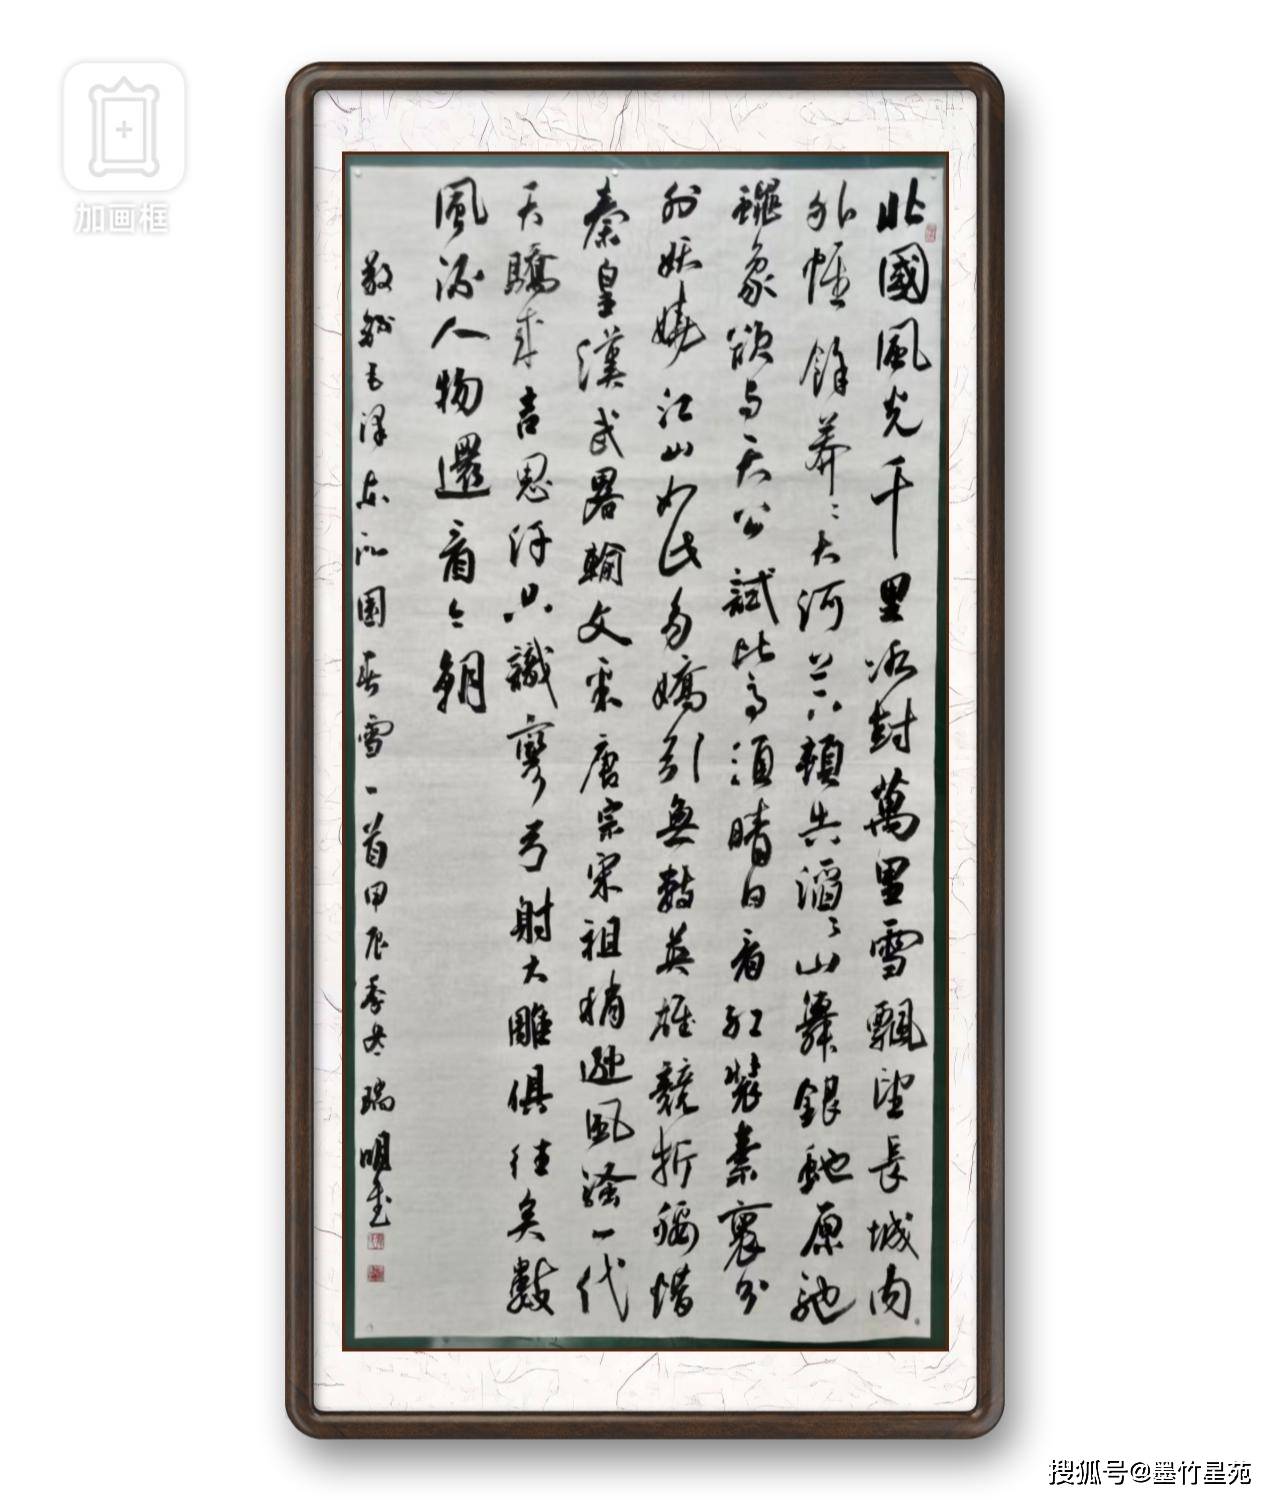 北國風光千里冰封萬里雪飄望長城内
外惟餘莽〻大河上下頓失滔〻山舞銀蛇原馳
蠟象欲与天公試比高須晴日看紅裝素裹分
外妖嬈江山如此多嬌引無數英雄競折腰惜
秦皇漢武略輸文采唐宗宋祖稍遜風騷一代
天驕成吉思汗只識彎弓射大雕俱往矣數
風流人物還看今朝
敬録毛澤东沁園春雪一首甲辰季冬瑞明书
加画框
搜狐号@墨竹星苑